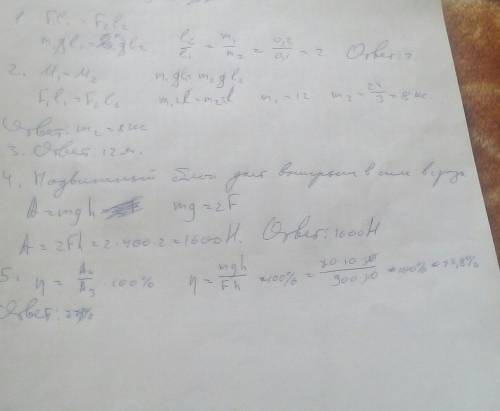 1. F₁l₁ = F₂l₂
m₁gl₁ = m₂gl₂ l₂/l₁ = m₁/m₂ = 0,2/0,1 = 2 Ответ: 2
2. M₁ = M₂ m₁gl₁ = m₂gl₂
F₁l₁ = F₂l₂ m₁2l = m₂3l m₁ = 12 m₂ = 24/3 = 8 кг
Ответ: m₂ = 8 кг
3. Ответ: 12 м.
4. Подвижный блок дает выигрыш в силе в 2 раза
A = mgh mg = 2F
A = 2Fh = 2·400·2 = 1600 Н. Ответ: 1600 Н
5. η = Aп/Aз · 100% η = mgh/Fh · 100% = 70·10·10/900·10 · 100% = 77,8%
Ответ: 77,8%